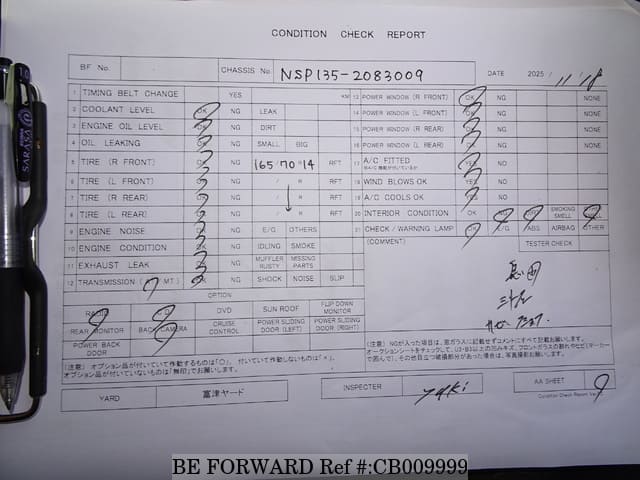 CONDITION CHECK REPORT
BF No.
CHASSIS No. NSP135-2083009
DATE 2025/11/18
1 TIMING BELT CHANGE YES KM
2 COOLANT LEVEL OK NG LEAK
3 ENGINE OIL LEVEL OK NG DIRT
4 OIL LEAKING OK NG SMALL BIG
5 TIRE (R FRONT) OK NG 165/70R14 RFT
6 TIRE (L FRONT) OK NG / R RFT
7 TIRE (R REAR) OK NG / R RFT
8 TIRE (L REAR) OK NG / R RFT
9 ENGINE NOISE OK NG E/G OTHERS
10 ENGINE CONDITION OK NG IDLING SMOKE
11 EXHAUST LEAK OK NG MUFFLER RUSTY MISSING PARTS
12 TRANSMISSION ( MT) OK NG SHOCK NOISE SLIP
13 POWER WINDOW (R FRONT) OK NG NONE
14 POWER WINDOW (L FRONT) OK NG NONE
15 POWER WINDOW (R REAR) OK NG NONE
16 POWER WINDOW (L REAR) OK NG NONE
17 A/C FITTED YES NO
18 WIND BLOWS OK YES NO
19 A/C COOLS OK YES NO
20 INTERIOR CONDITION OK NG DIRT SMOKING SMELL SMELL
21 CHECK/WARNING LAMP OK E/G ABS AIRBAG OTHER
(COMMENT) TESTER CHECK
OPTION
RADIO CD DVD SUN ROOF FLIP DOWN MONITOR
REAR MONITOR BACK CAMERA CRUISE CONTROL POWER SLIDING DOOR (LEFT) POWER SLIDING DOOR (RIGHT)
POWER BACK DOOR
(注意) オプション品が付いていて作動するものは「○」、付いていて作動しないものは「×」、
オプション品が付いていないものは「無印」でお願いします。
(注意) NGが入った項目は、窓ガラスに記載せずコメントにすべて記載お願いします。
YARD 富津ヤード
INSPECTER
AA SHEET
Condition Check Report Ver.
SARASA
BE FORWARD Ref #:CB009999